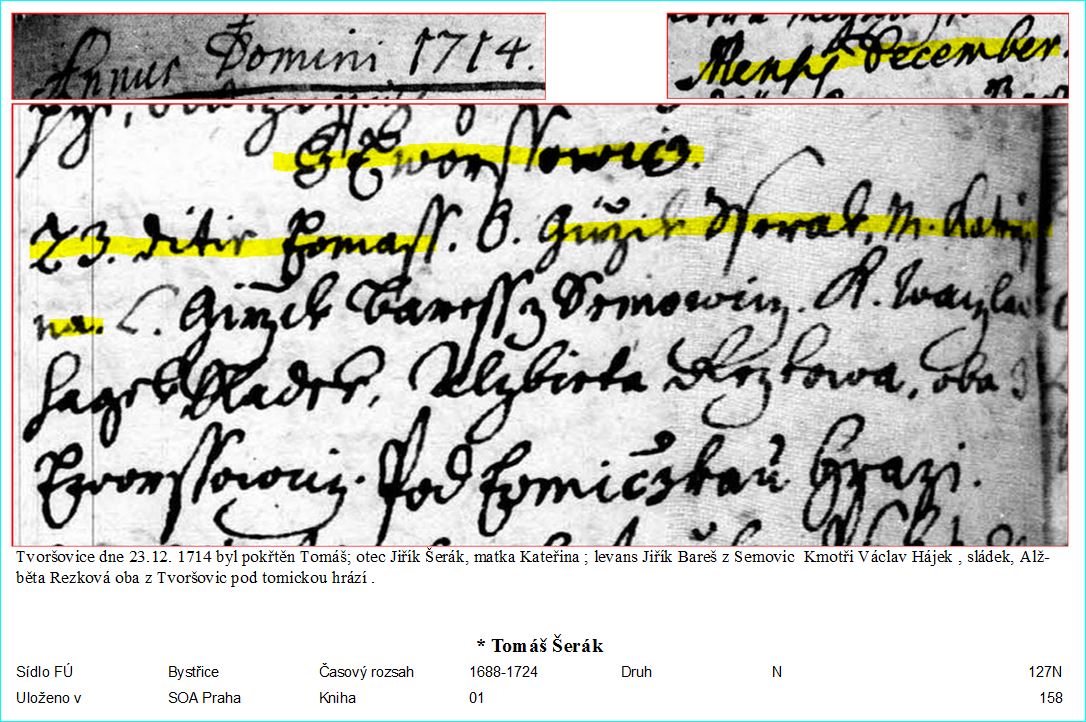 Annus Domini 1714.
Mensis December.
Z Tworssowicz.
23. ditie Tomass. O. Girzik Sserak, M. Katerzi
na. L. Girzik Baress z Semowicz. K. Waczlaw
Hagek Sladek, Alzbieta Rezkowa, oba z
Tworssowicz. Pod Tomiczkau Hrazi.
Tvoršovice dne 23.12. 1714 byl pokřtěn Tomáš; otec Jiřík Šerák, matka Kateřina ; levans Jiřík Bareš z Semovic Kmotři Václav Hájek , sládek, Alž-
běta Rezková oba z Tvoršovic pod tomickou hrází .
* Tomáš Šerák
Sídlo FÚ Bystřice Časový rozsah 1688-1724 Druh N 127N
Uloženo v SOA Praha Kniha 01 158